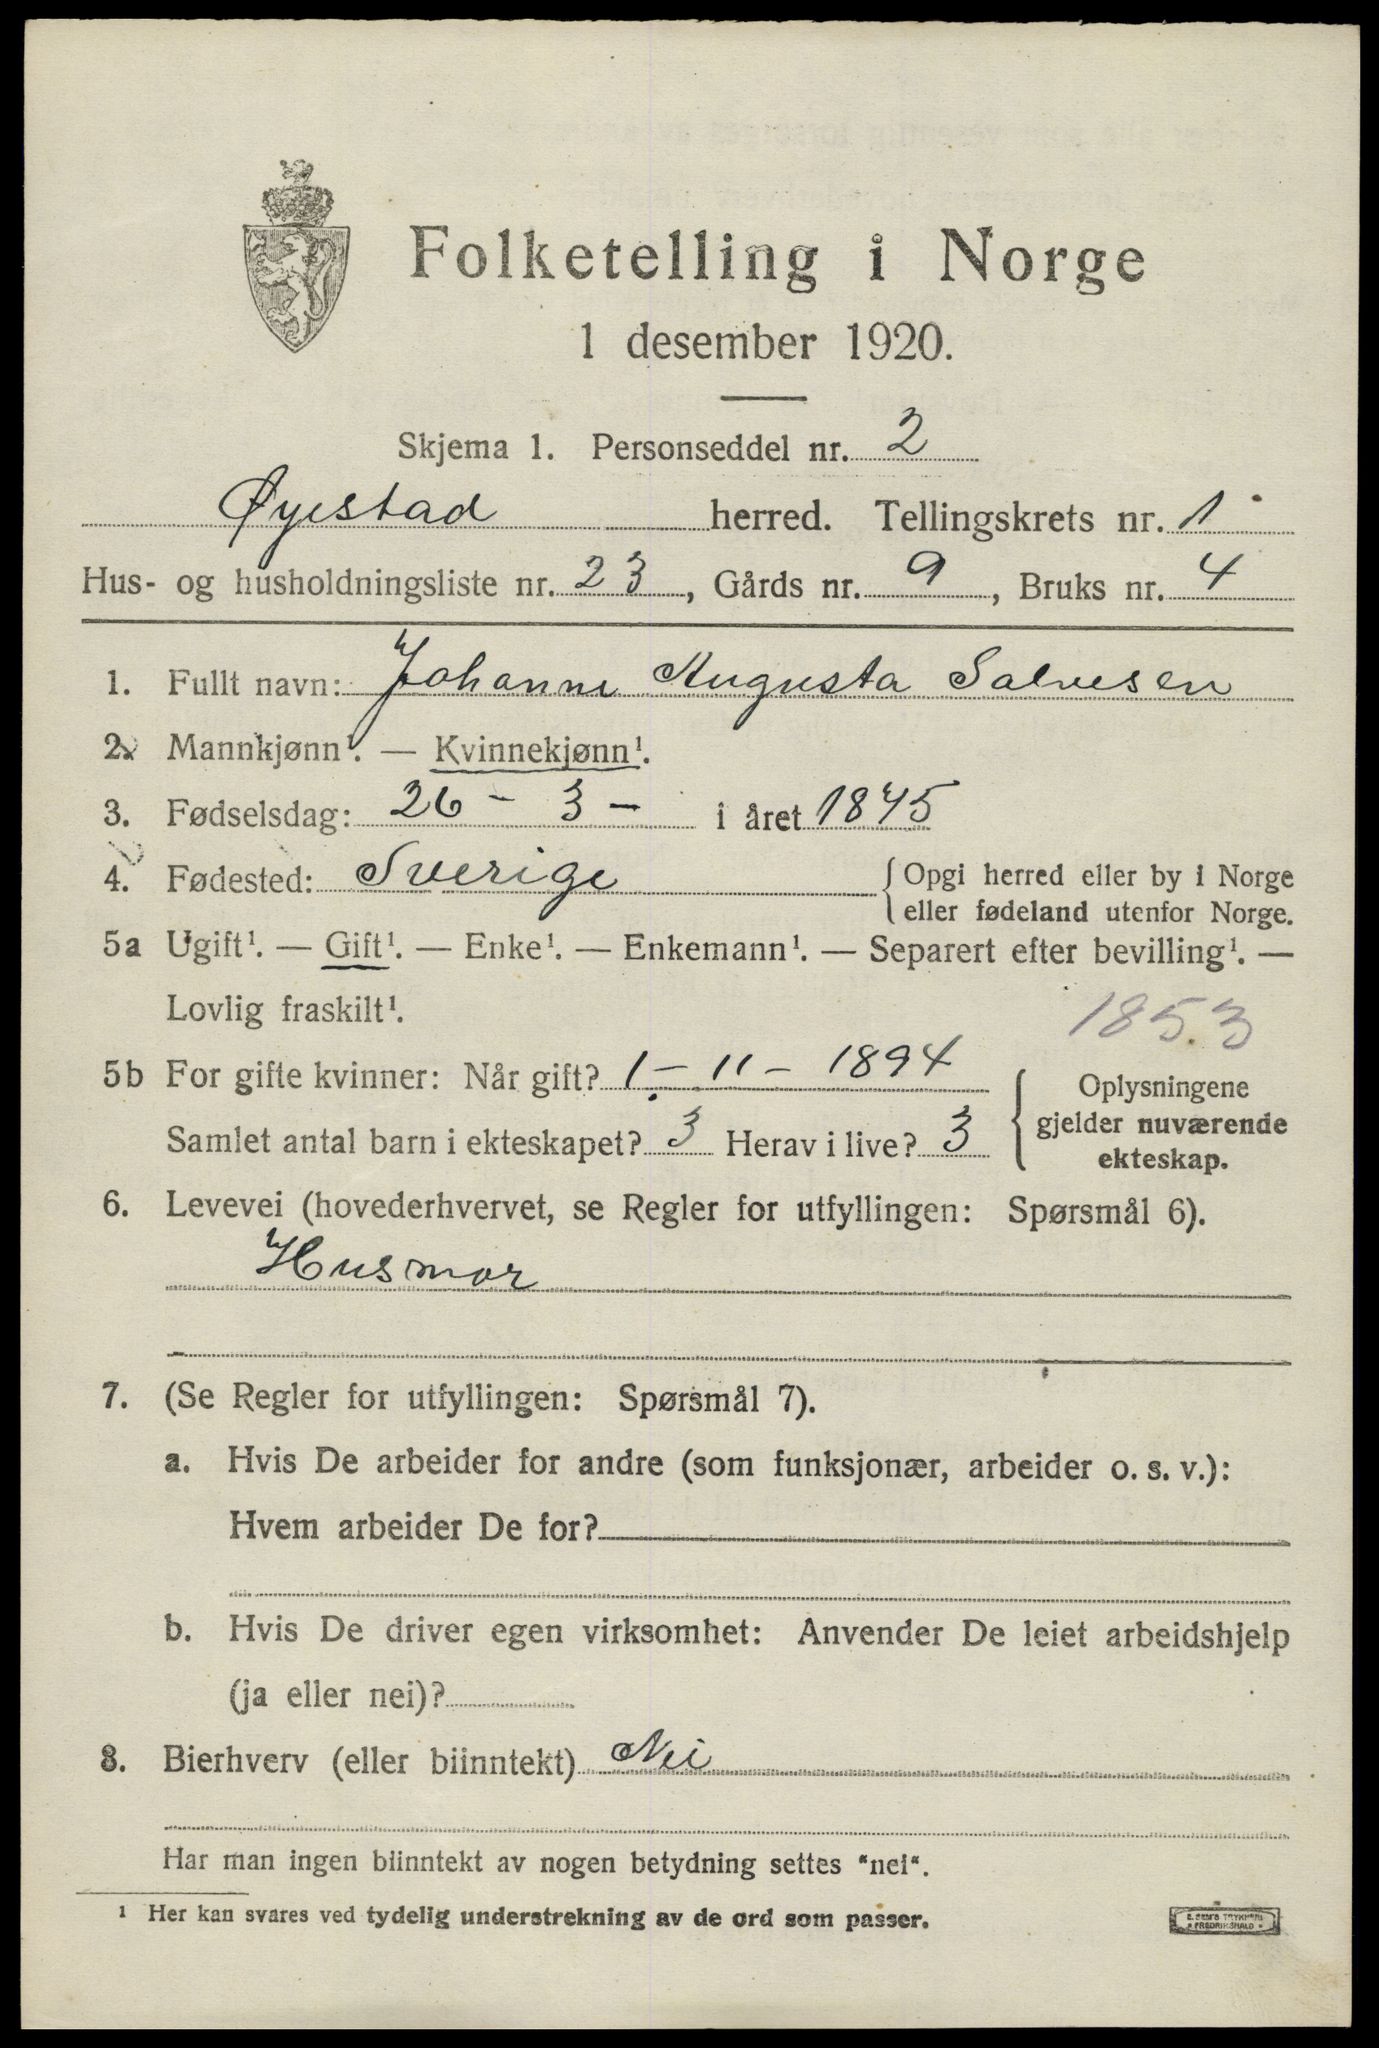 Folketelling i Norge
1 desember 1920.
Skjema 1. Personseddel nr. 2
Øyestad herred. Tellingskrets nr. 1
Hus- og husholdningsliste nr. 23, Gårds nr. 9, Bruks nr. 4
1. Fullt navn: Johanne Augusta Salvesen
2. Mannkjønn¹. — Kvinnekjønn¹.
3. Fødselsdag: 26 - 3 - i året 1875
4. Fødested: Sverige {Opgi herred eller by i Norge
eller fødeland utenfor Norge.
5a Ugift¹. — Gift¹. — Enke¹. — Enkemann¹. — Separert efter bevilling¹. —
Lovlig fraskilt¹.
1853
5b For gifte kvinner: Når gift? 1 - 11 - 1894
Samlet antal barn i ekteskapet? 3 Herav i live? 3
{Oplysningene
gjelder nuværende
ekteskap.
6. Levevei (hovederhvervet, se Regler for utfyllingen: Spørsmål 6).
Husmor
7. (Se Regler for utfyllingen: Spørsmål 7).
a. Hvis De arbeider for andre (som funksjonær, arbeider o. s. v.):
Hvem arbeider De for?
b. Hvis De driver egen virksomhet: Anvender De leiet arbeidshjelp
(ja eller nei)?
8. Bierhverv (eller biinntekt) Nei
Har man ingen biinntekt av nogen betydning settes "nei".
1 Her kan svares ved tydelig understrekning av de ord som passer.
E. SEM'S TRYKKERI
FREDRIKSHALD